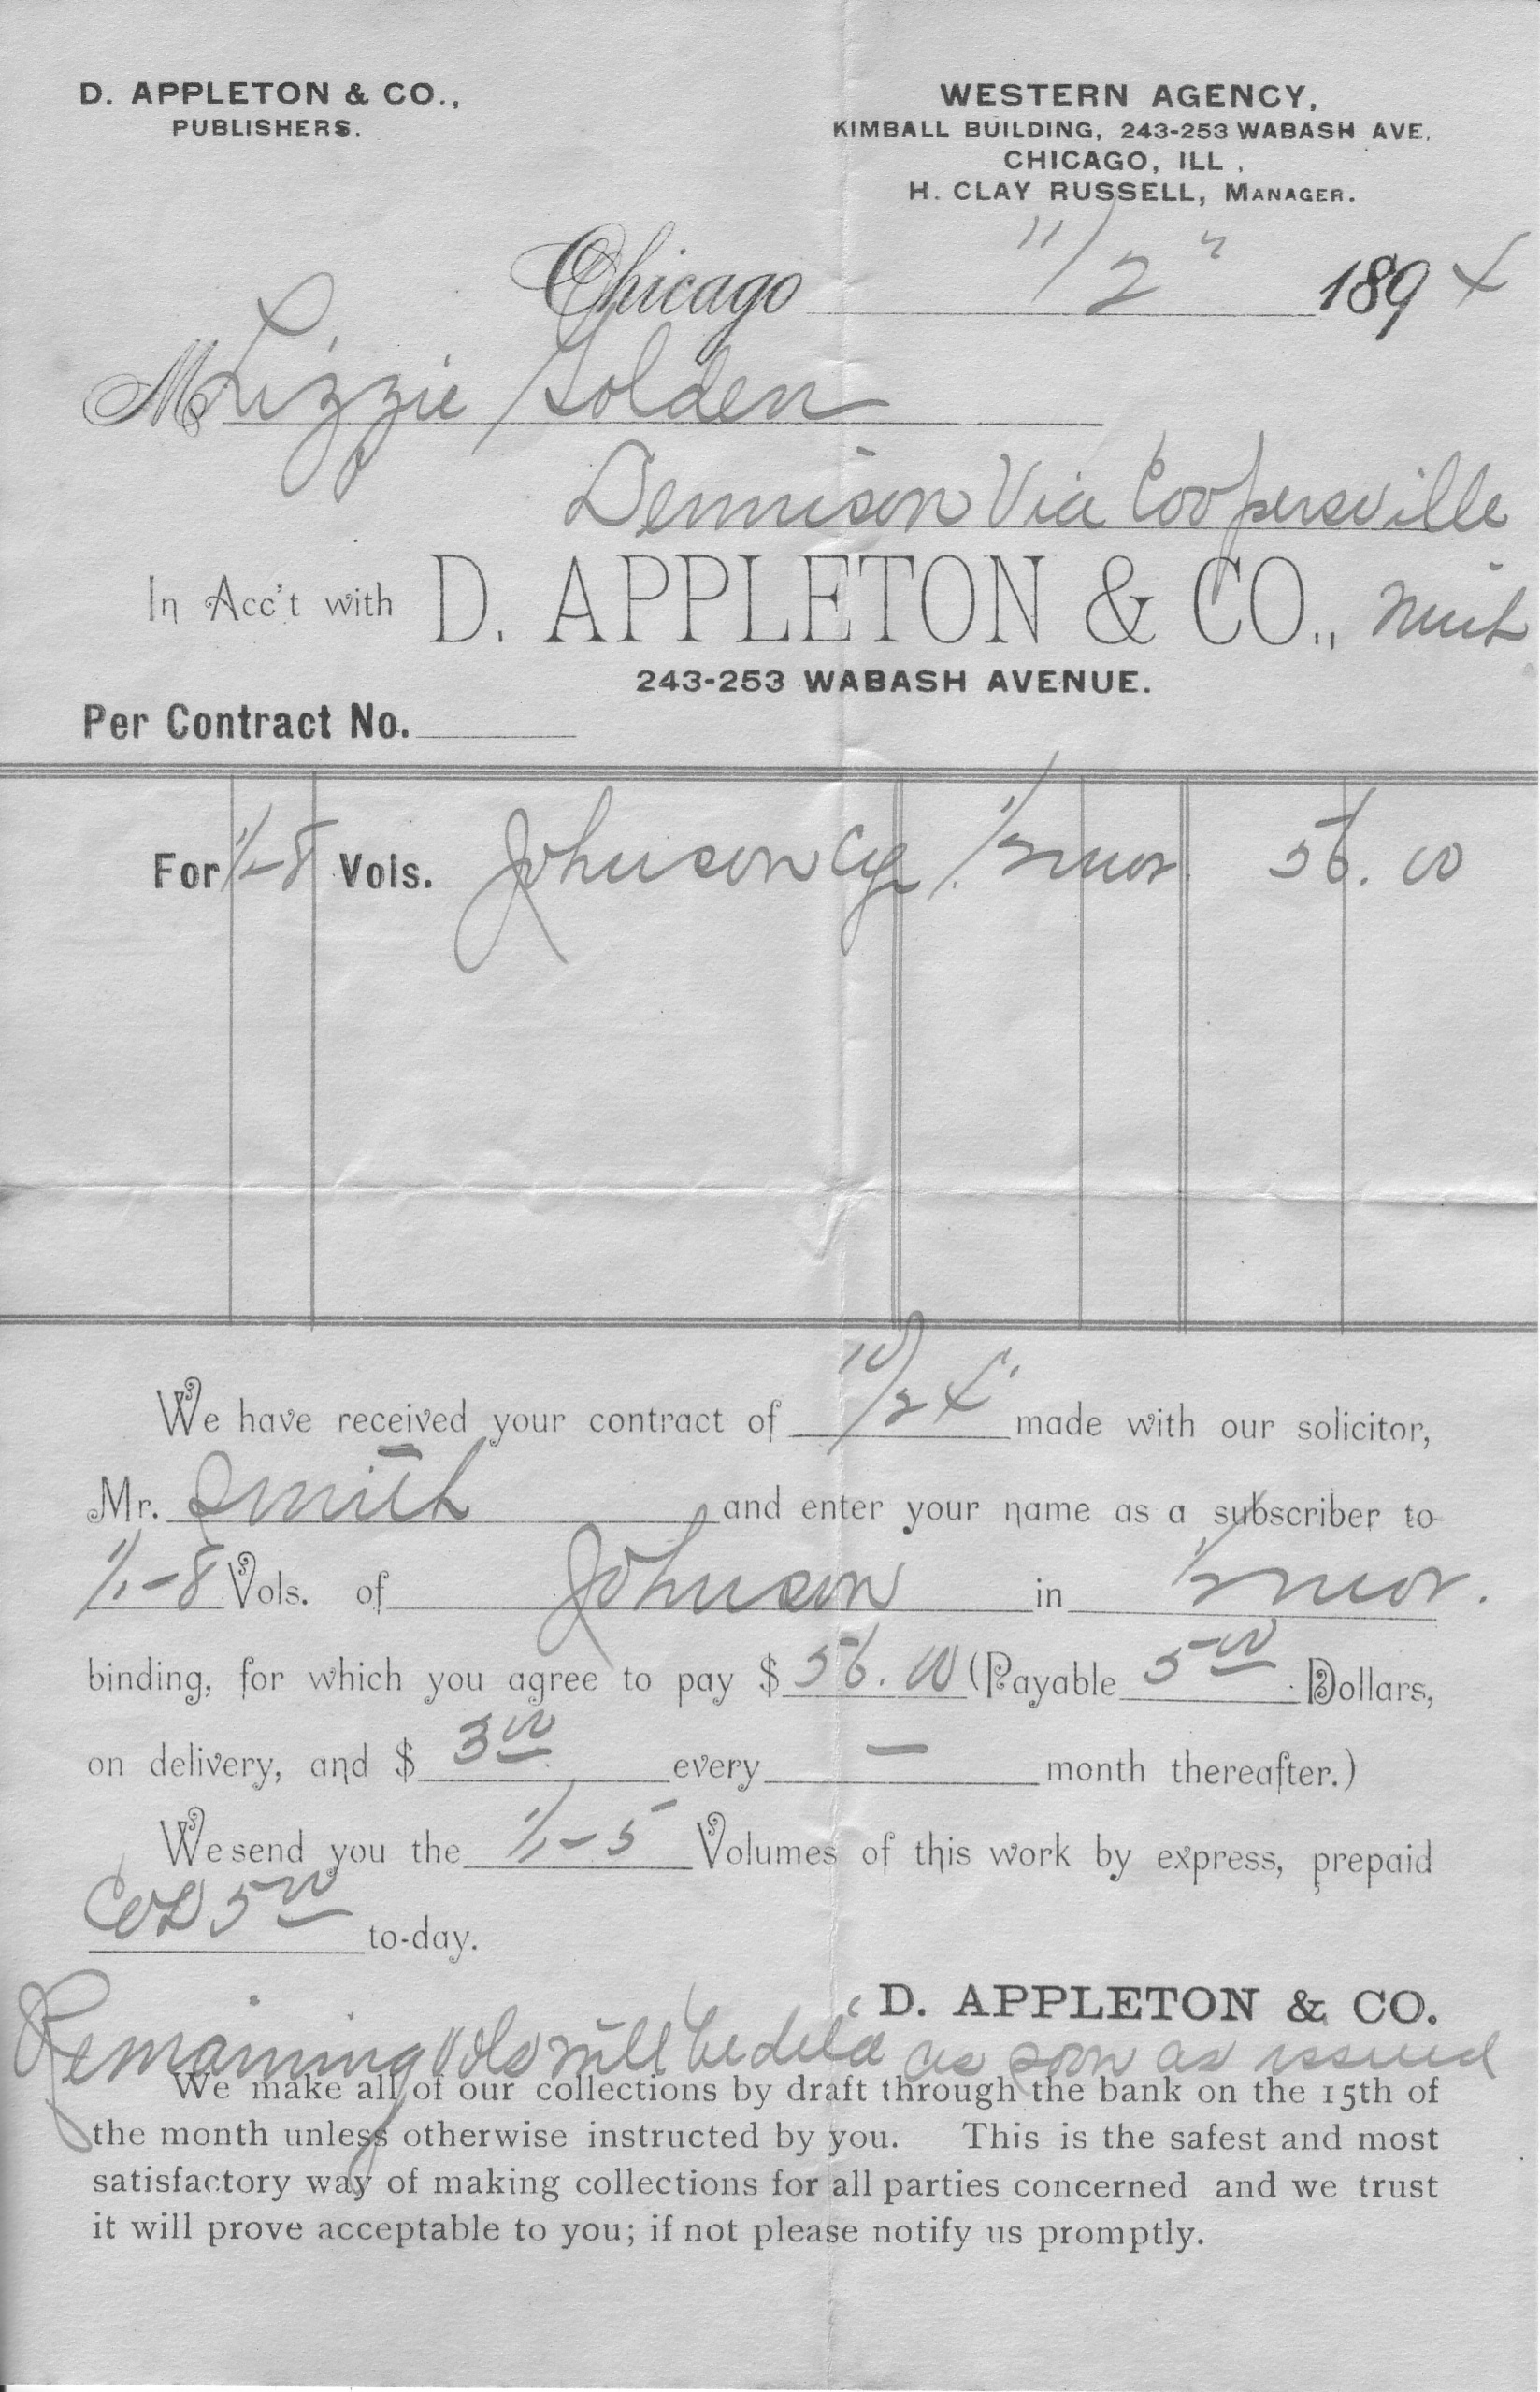 D. APPLETON & CO.,
PUBLISHERS.
WESTERN AGENCY,
KIMBALL BUILDING, 243-253 WABASH AVE.
CHICAGO, ILL.
H. CLAY RUSSELL, MANAGER.
Chicago 11/2" 1894
M Lizzie Golden
Dennison Via Coopersville
In Acc't with D. APPLETON & CO., Mich
243-253 WABASH AVENUE.
Per Contract No.
For 1/1-8 Vols. Johnson Cy. 1/2 mor. 56.00
We have received your contract of 10/24 made with our solicitor,
Mr. Smith and enter your name as a subscriber to
1/1-8 Vols. of Johnson in 1/2 mor.
binding, for which you agree to pay $ 56.00 (Payable 5 00 Dollars,
on delivery, and $ 3 00 every — month thereafter.)
We send you the 1/1-5 Volumes of this work by express, prepaid
COD 5 00 to-day.
D. APPLETON & CO.
Remaining vols will be deld as soon as issued
We make all of our collections by draft through the bank on the 15th of
the month unless otherwise instructed by you. This is the safest and most
satisfactory way of making collections for all parties concerned and we trust
it will prove acceptable to you; if not please notify us promptly.